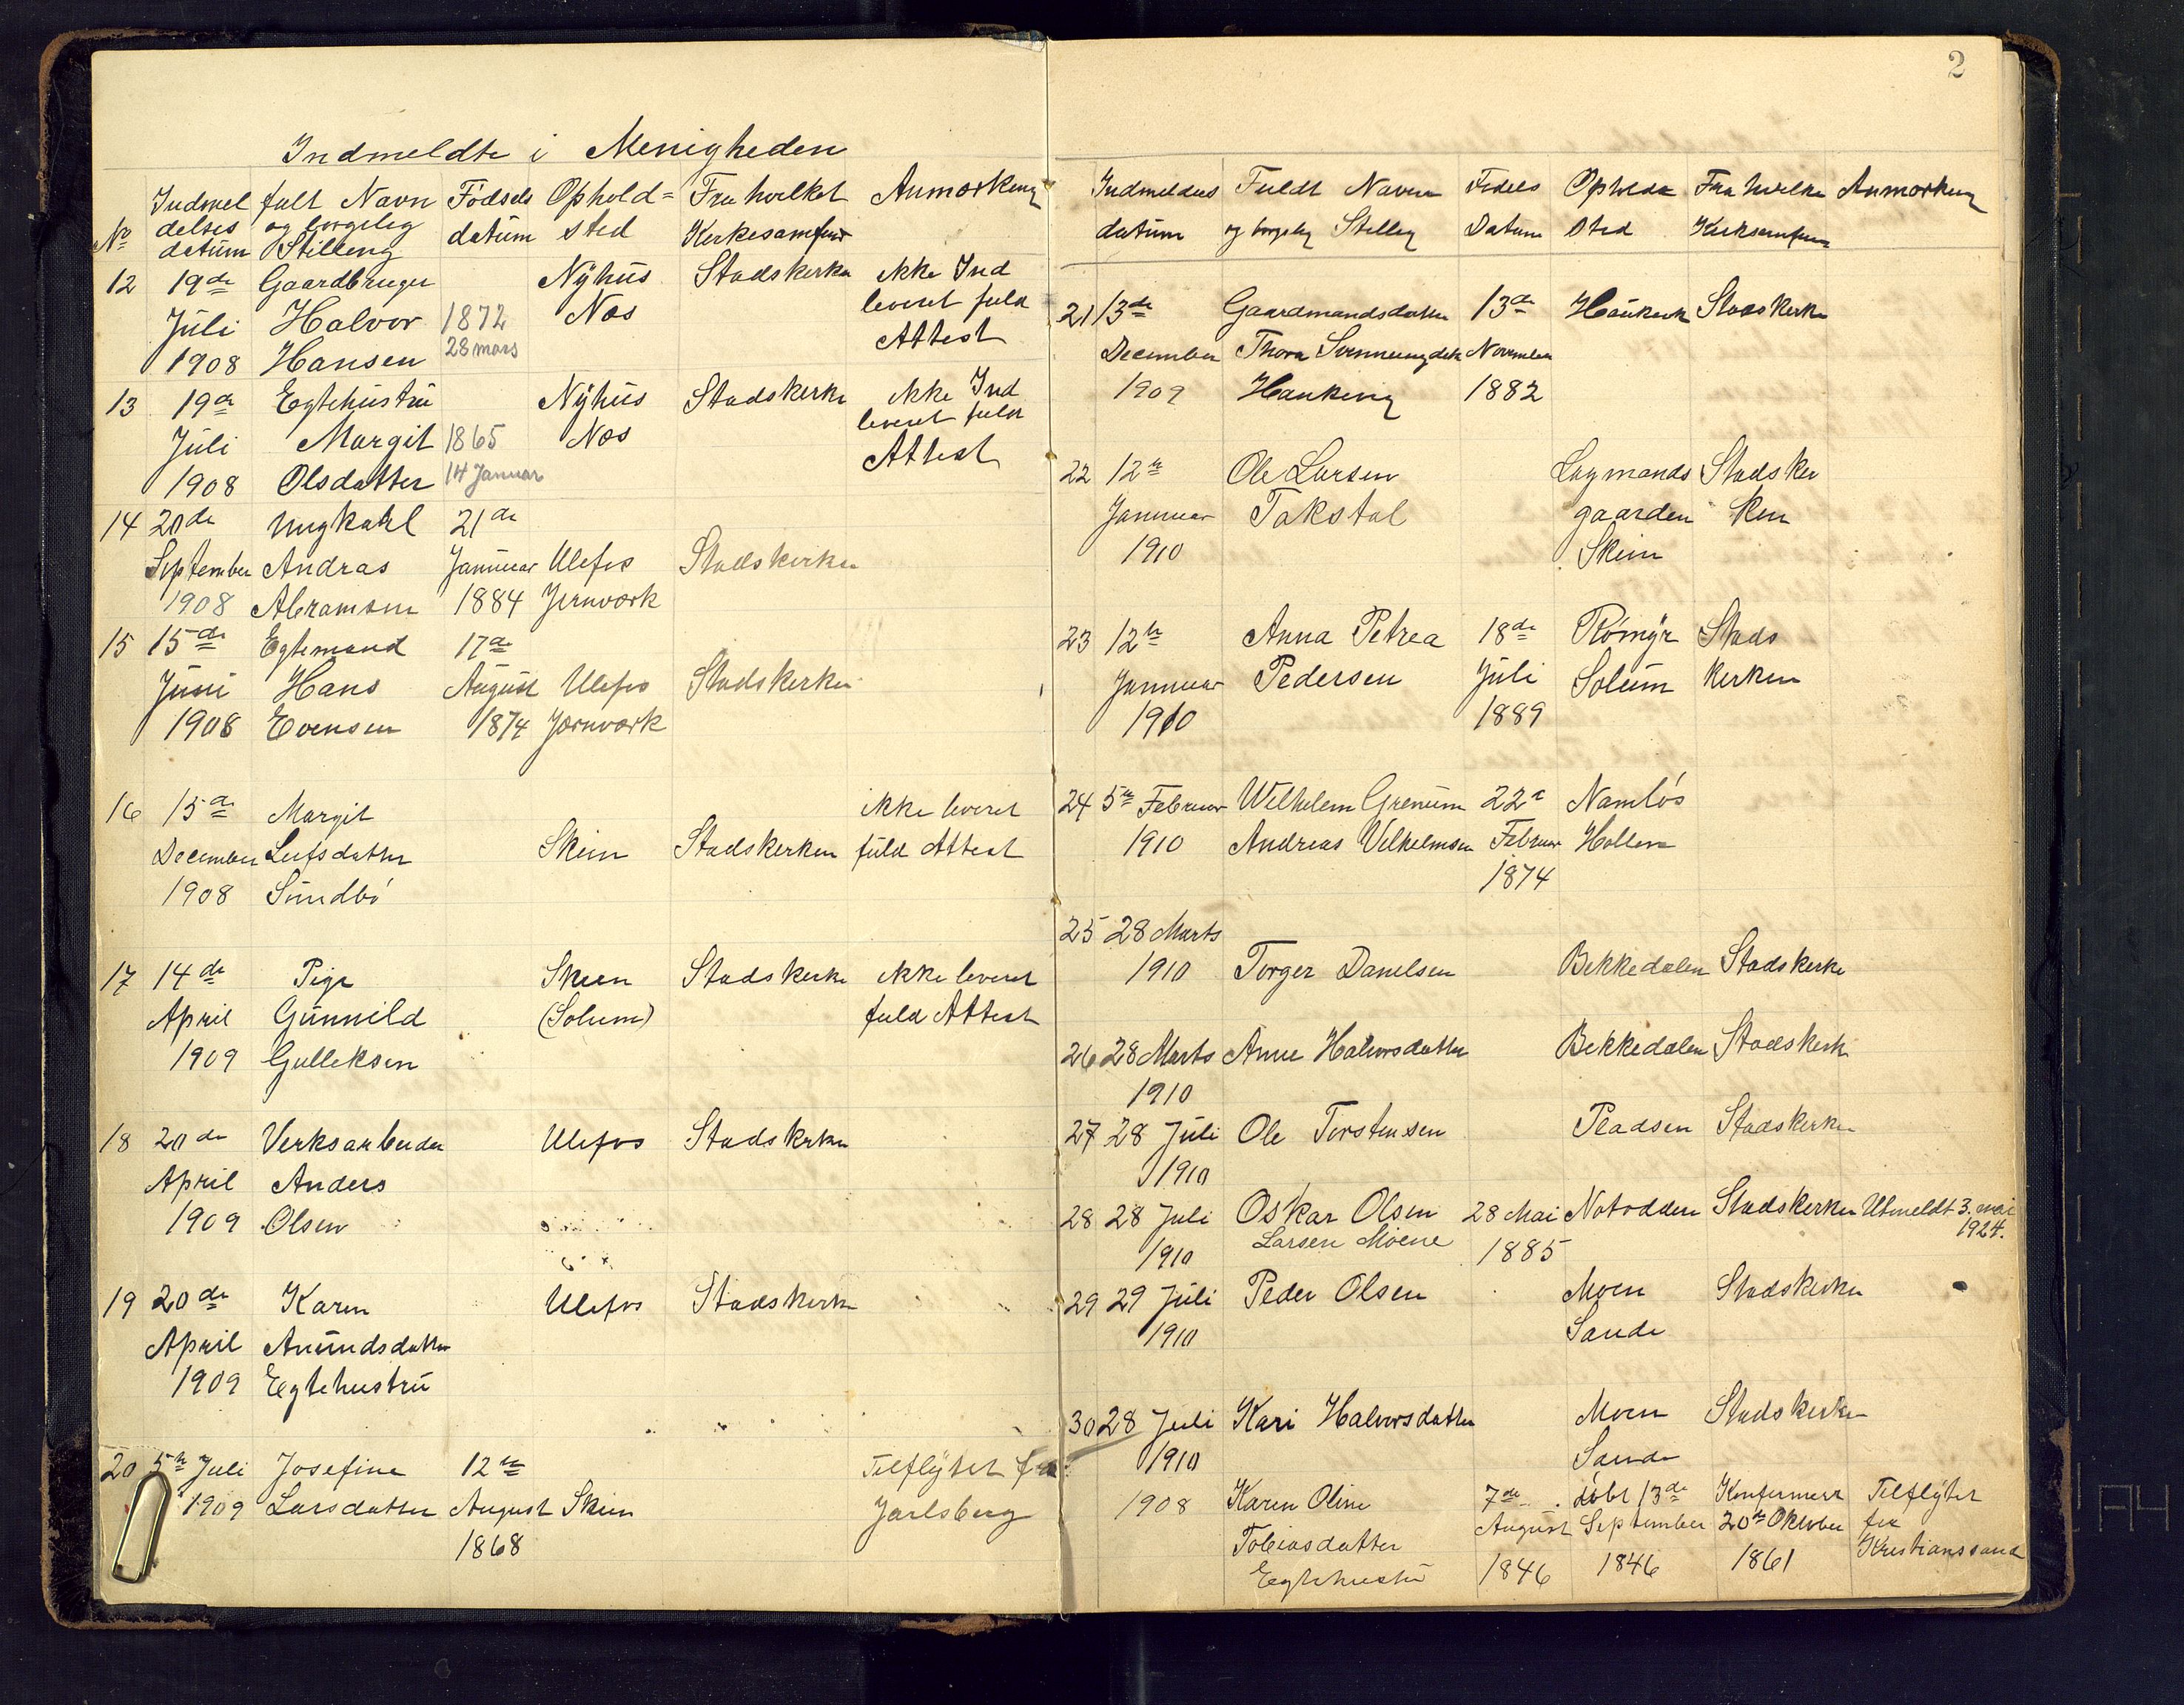 Indmeldte i Menigheden
No Indmel delses datum fult Navn og borgelig Stilling Fødsels datum Ophold= sted Fra hvilket Kerkesamfund Anmærkning
12 19de Gaardbruger Nyhus Stadskerke ikke Ind
Juli Halvor 1872 Næs leveret fuld
1908 Hansen 28 mars Attest
13 19de Egtehustru Nyhus Stadskerke ikke Ind
Juli Margit 1865 Næs leveret fuld
1908 Olsdatter 14 Januar Attest
14 20de Ungkarl 21de
September Andras Januar Ulefos Stadskerke
1908 Abramsen 1884 Jernværk
15 15de Egtemand 17de
Juni Hans August Ulefos Stadskerke
1908 Evensen 1874 Jærnværk
16 15de Margit ikke leveret
December Leifsdatter Skien Stadskerken fuld Attest
1908 Sundbö
17 14de Pige Skien Stadskerke ikke leveret
April Gunnild (Solum) fuld Attest
1909 Gulleksen
18 20de Verksarbeider Ulefos Stadskerke
April Anders
1909 Olsen
19 20de Karen Ulefos Stadskerke
April Amundsdatter
1909 Egtehustru
20 5te Juli Josefine 12te Tilflytet fra
1909 Larsdatter August Skien Jarlsberg
1868
2
Indmeldes Fuldt Navn Fødels Opholds Fra hvilke Anmærkning
datum og borgelig Stelling Datum Sted Kirksamfun
21 13de Gaardmandsdatter 13de Haukerk Stadskerke
December Thora November
1909 Haukering 1882
22 12te Ole Larsen Lagmands Stadsker
Januar Takstal gaarden ken
1910 Skien
23 12te Anna Petrea 18de Römyr Stads
Januar Pedersen Juli Solum kerken
1910 1889
24 5te Februar Wilhelm Grenum 22de Namlös
1910 Andreas Vilhelmsen Februar Hollen
1874
25 28 Marts
1910 Torger Danelsen Bekkedalen Stadskerke
26 28 Marts Anne Halvorsdatter Bekkedalen Stadskerk
1910
27 28 Juli Ole Torstensen Pladsen Stadskerke
1910
28 28 Juli Oskar Olsen 28 Mai Notodden Stadskerke Utmeldt 3. mai
1910 Larsen Moene 1885 1924.
29 29 Juli Peder Olsen Moen Stadskerke
1910 Sande
30 28 Juli Kari Halvorsdatter Moen Stadskerke
1910 Sande
1908 Karen Oline 7de döbt 13de Konfermert Tilflyttet
Tobiasdatter August September 20de Oktober fra
Egtehustru 1846 1846 1861 Kristianssand